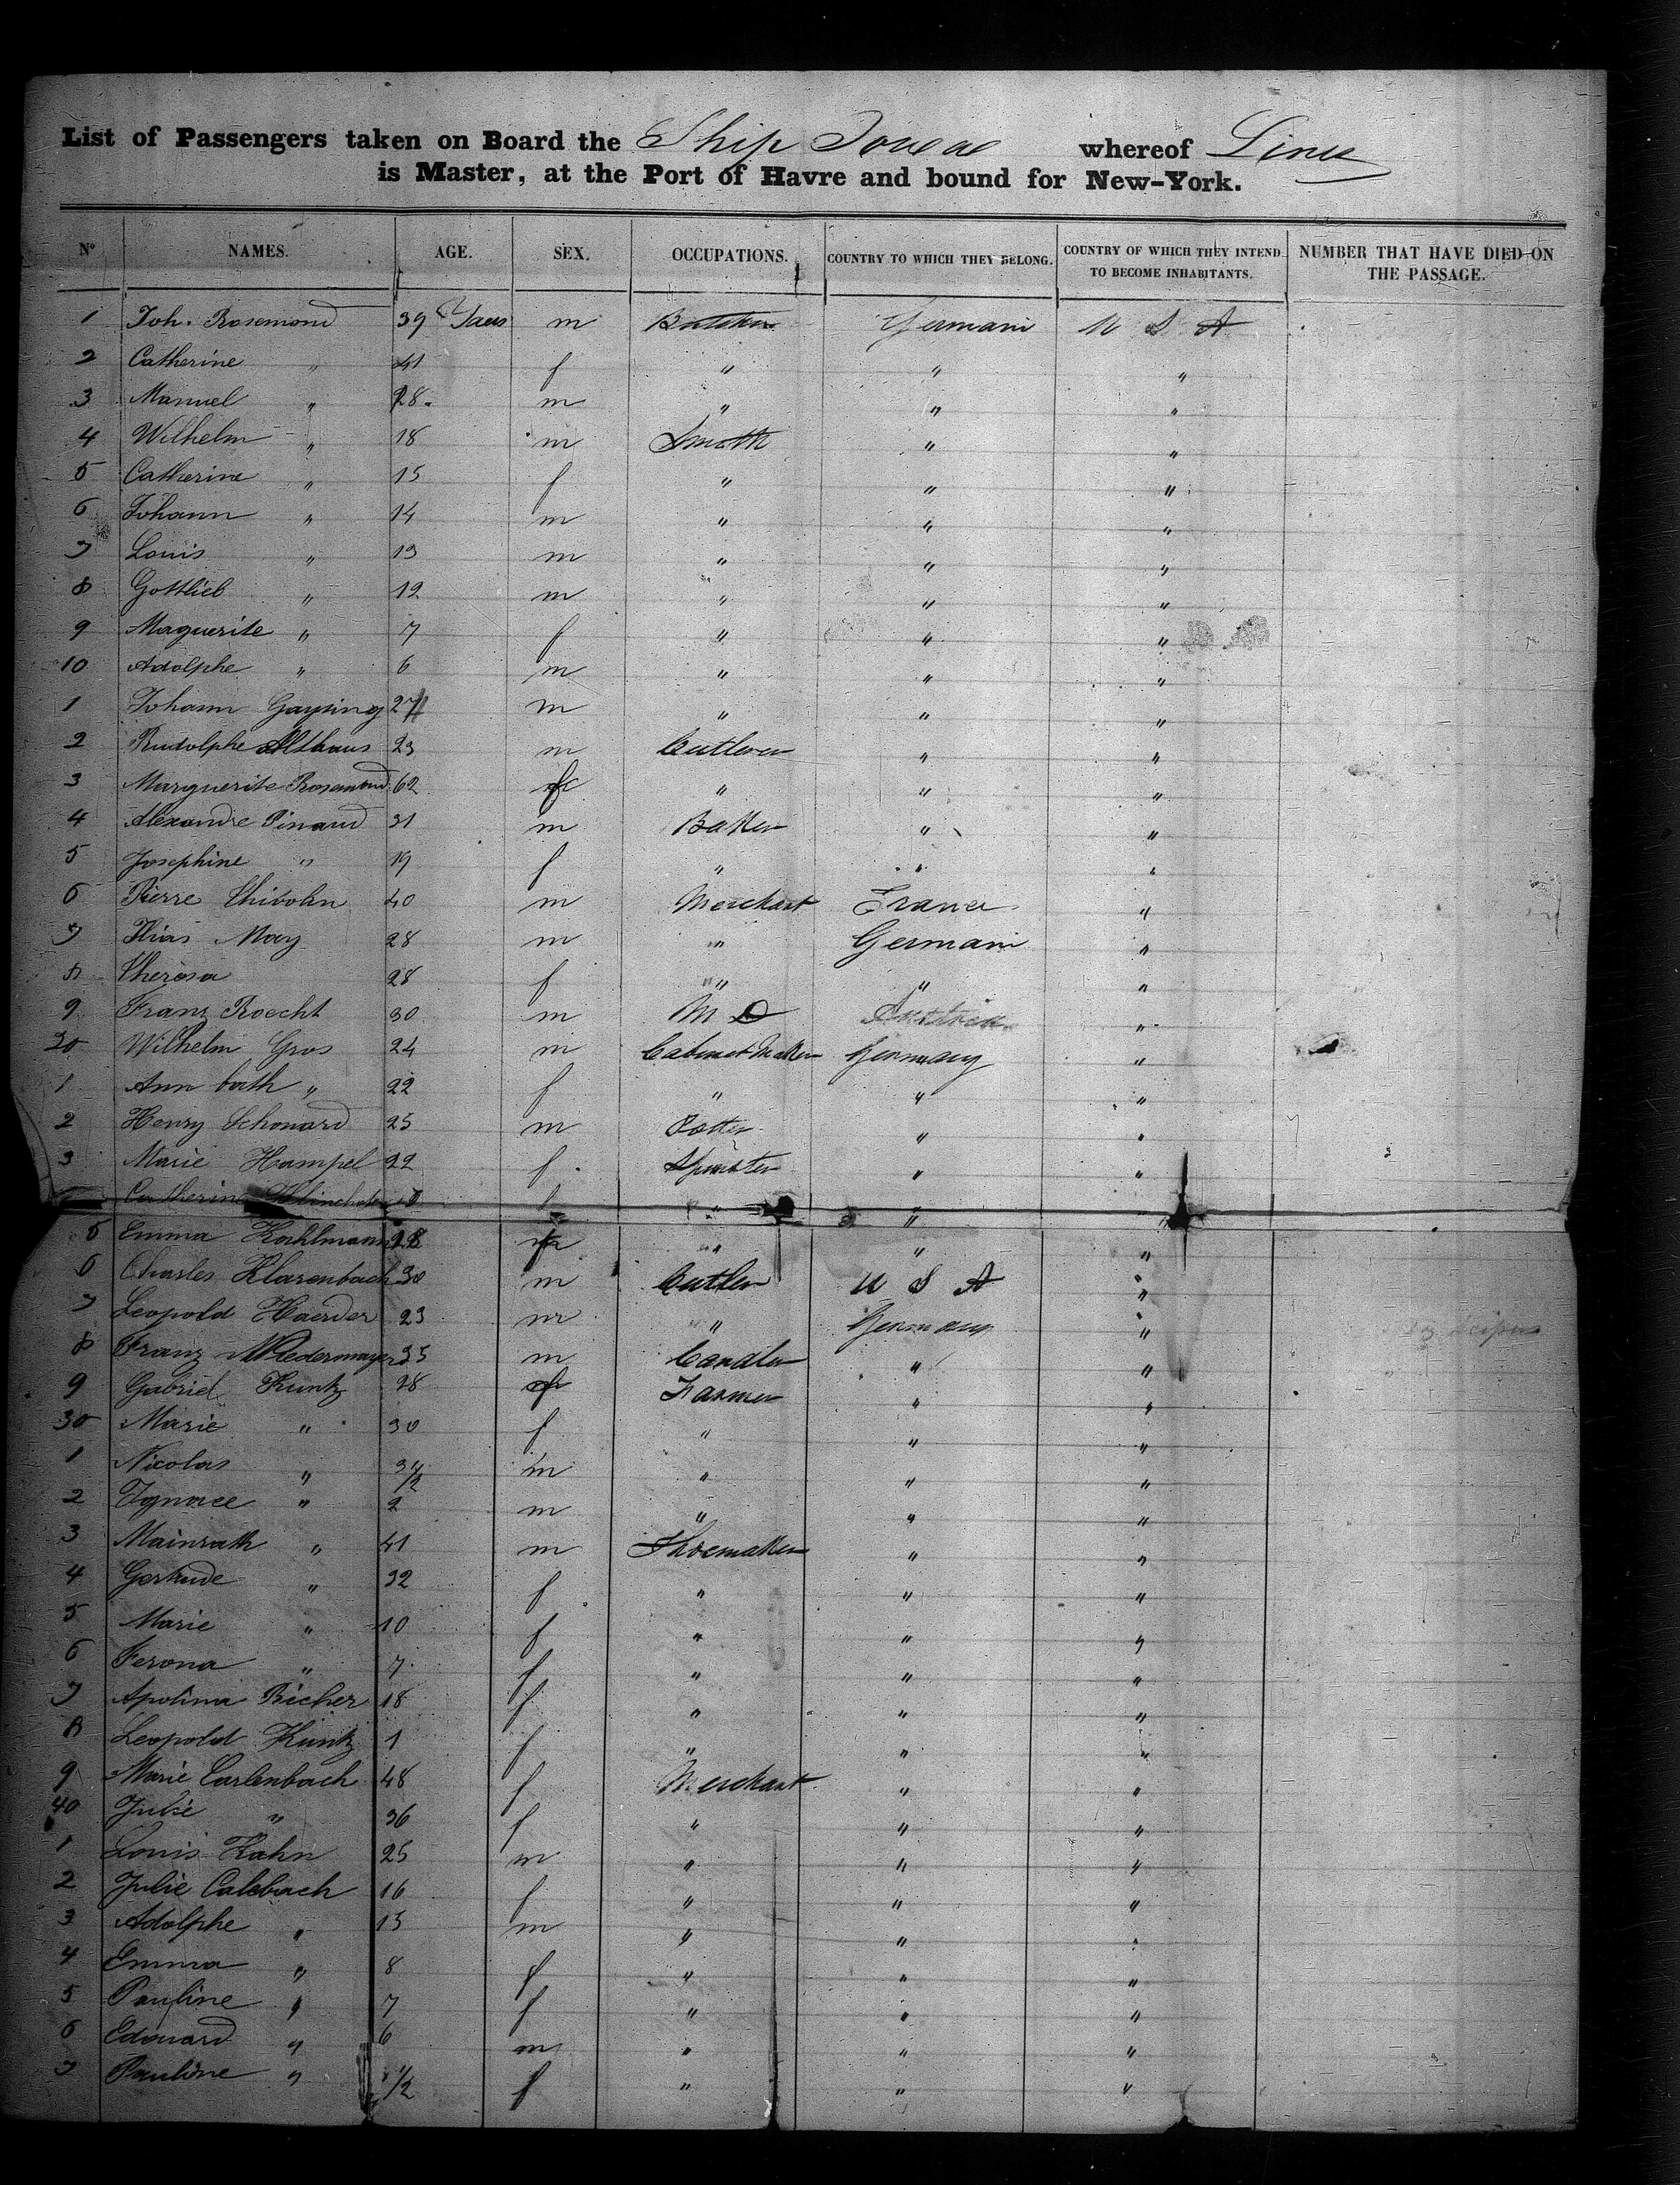 List of Passengers taken on Board the Ship whereof Lines
is Master, at the Port of Havre and bound for New-York.
N° NAMES. AGE. SEX. OCCUPATIONS. COUNTRY TO WHICH THEY BELONG. COUNTRY OF WHICH THEY INTEND TO BECOME INHABITANTS. NUMBER THAT HAVE DIED ON THE PASSAGE.
1 Joh. Rosemond 39 m Butcher Germani U S A
2 Catherine " 41 f " " "
3 Manuel " 28. m " " "
4 Wilhelm " 18 m Smith " "
5 Catherine " 15 f " " "
6 Johann " 14 m " " "
7 Louis " 13 m " " "
8 Gottlieb " 12 m " " "
9 Maguerite " 7 f " " "
10 Adolphe " 6 m " " "
1 Johann Gaysing 27 m " " "
2 Rudolphe Althaus 23 m " "
3 Marguerite Rosemond 62 f " " "
4 Alexandre Pinaud 31 m Baker " "
5 Josephine " 19 f " " "
6 Pierre 40 m Merchant France "
7 May 28 m " Germani "
8 Theresa 28 f " " "
9 Franz Roecht 30 m M D Austria "
20 Wilhelm Gros 24 m Cabinet Maker Germany "
1 Ann bath " 22 f " " "
2 Henry Schonard 25 m Potter " "
3 Marie Hampel 22 f Spinster " "
Catherine f " " "
5 Emma Kohlmann 18 f " " "
6 Charles Klarenbach 30 m Cutler U S A "
7 Leopold Haerder 23 m " Germany "
8 Franz Niedermayer 35 m Candler " "
9 Gabriel Kuntz 28 Farmer " "
30 Marie " 30 f " " "
1 Nicolas " 3 1/2 m " " "
2 Ignace " 2 m " " "
3 Mainrath " 41 m Shoemaker " "
4 Gertrude " 32 f " " "
5 Marie " 10 f " " "
6 Ferona " 7 f " " "
7 Apolina Bicher 18 f " " "
8 Leopold Kuntz 1 f " " "
9 Marie Carlenbach 48 f Merchant " "
40 Julie " 36 f " " "
1 Louis Kahn 25 m " " "
2 Julie Calebach 16 f " " "
3 Adolphe " 15 m " " "
4 Emma " 8 f " " "
5 Pauline " 7 f " " "
6 Edouard " 6 m " " "
7 Pauline " 1/2 f " " "